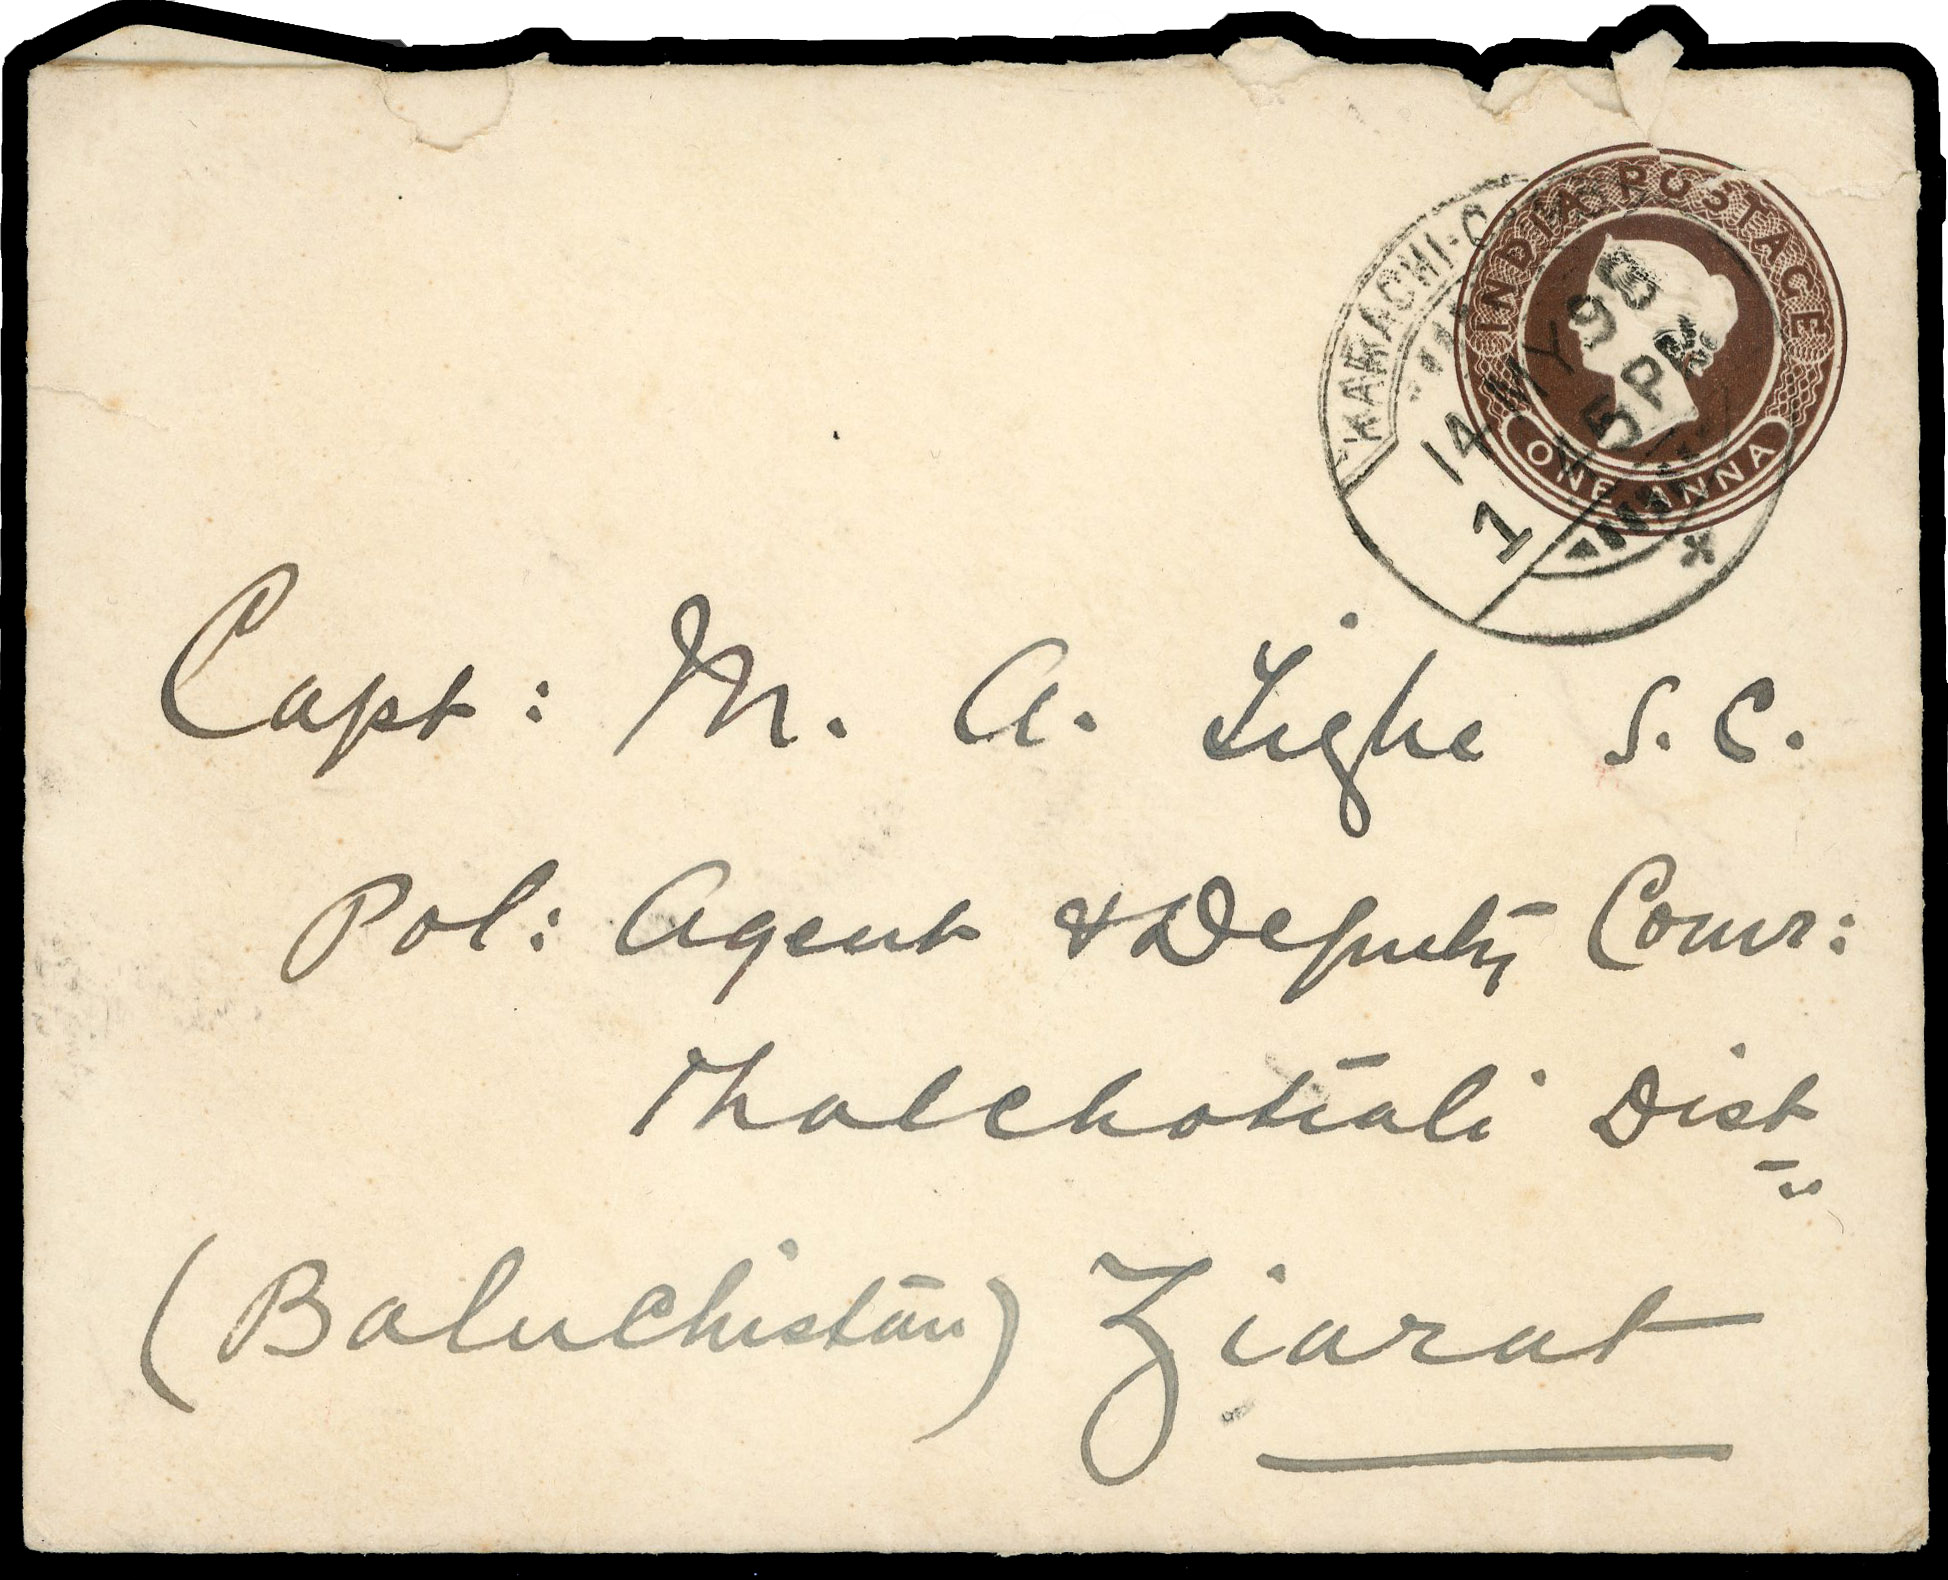 INDIA POSTAGE
ONE ANNA
KARACHI-C
14 MY 98
5 PM
1
Capt: M. A. Tighe S. C.
Pol: Agent & Deputy Comr:
Thalchotiali Dist
(Baluchistan) Ziarat